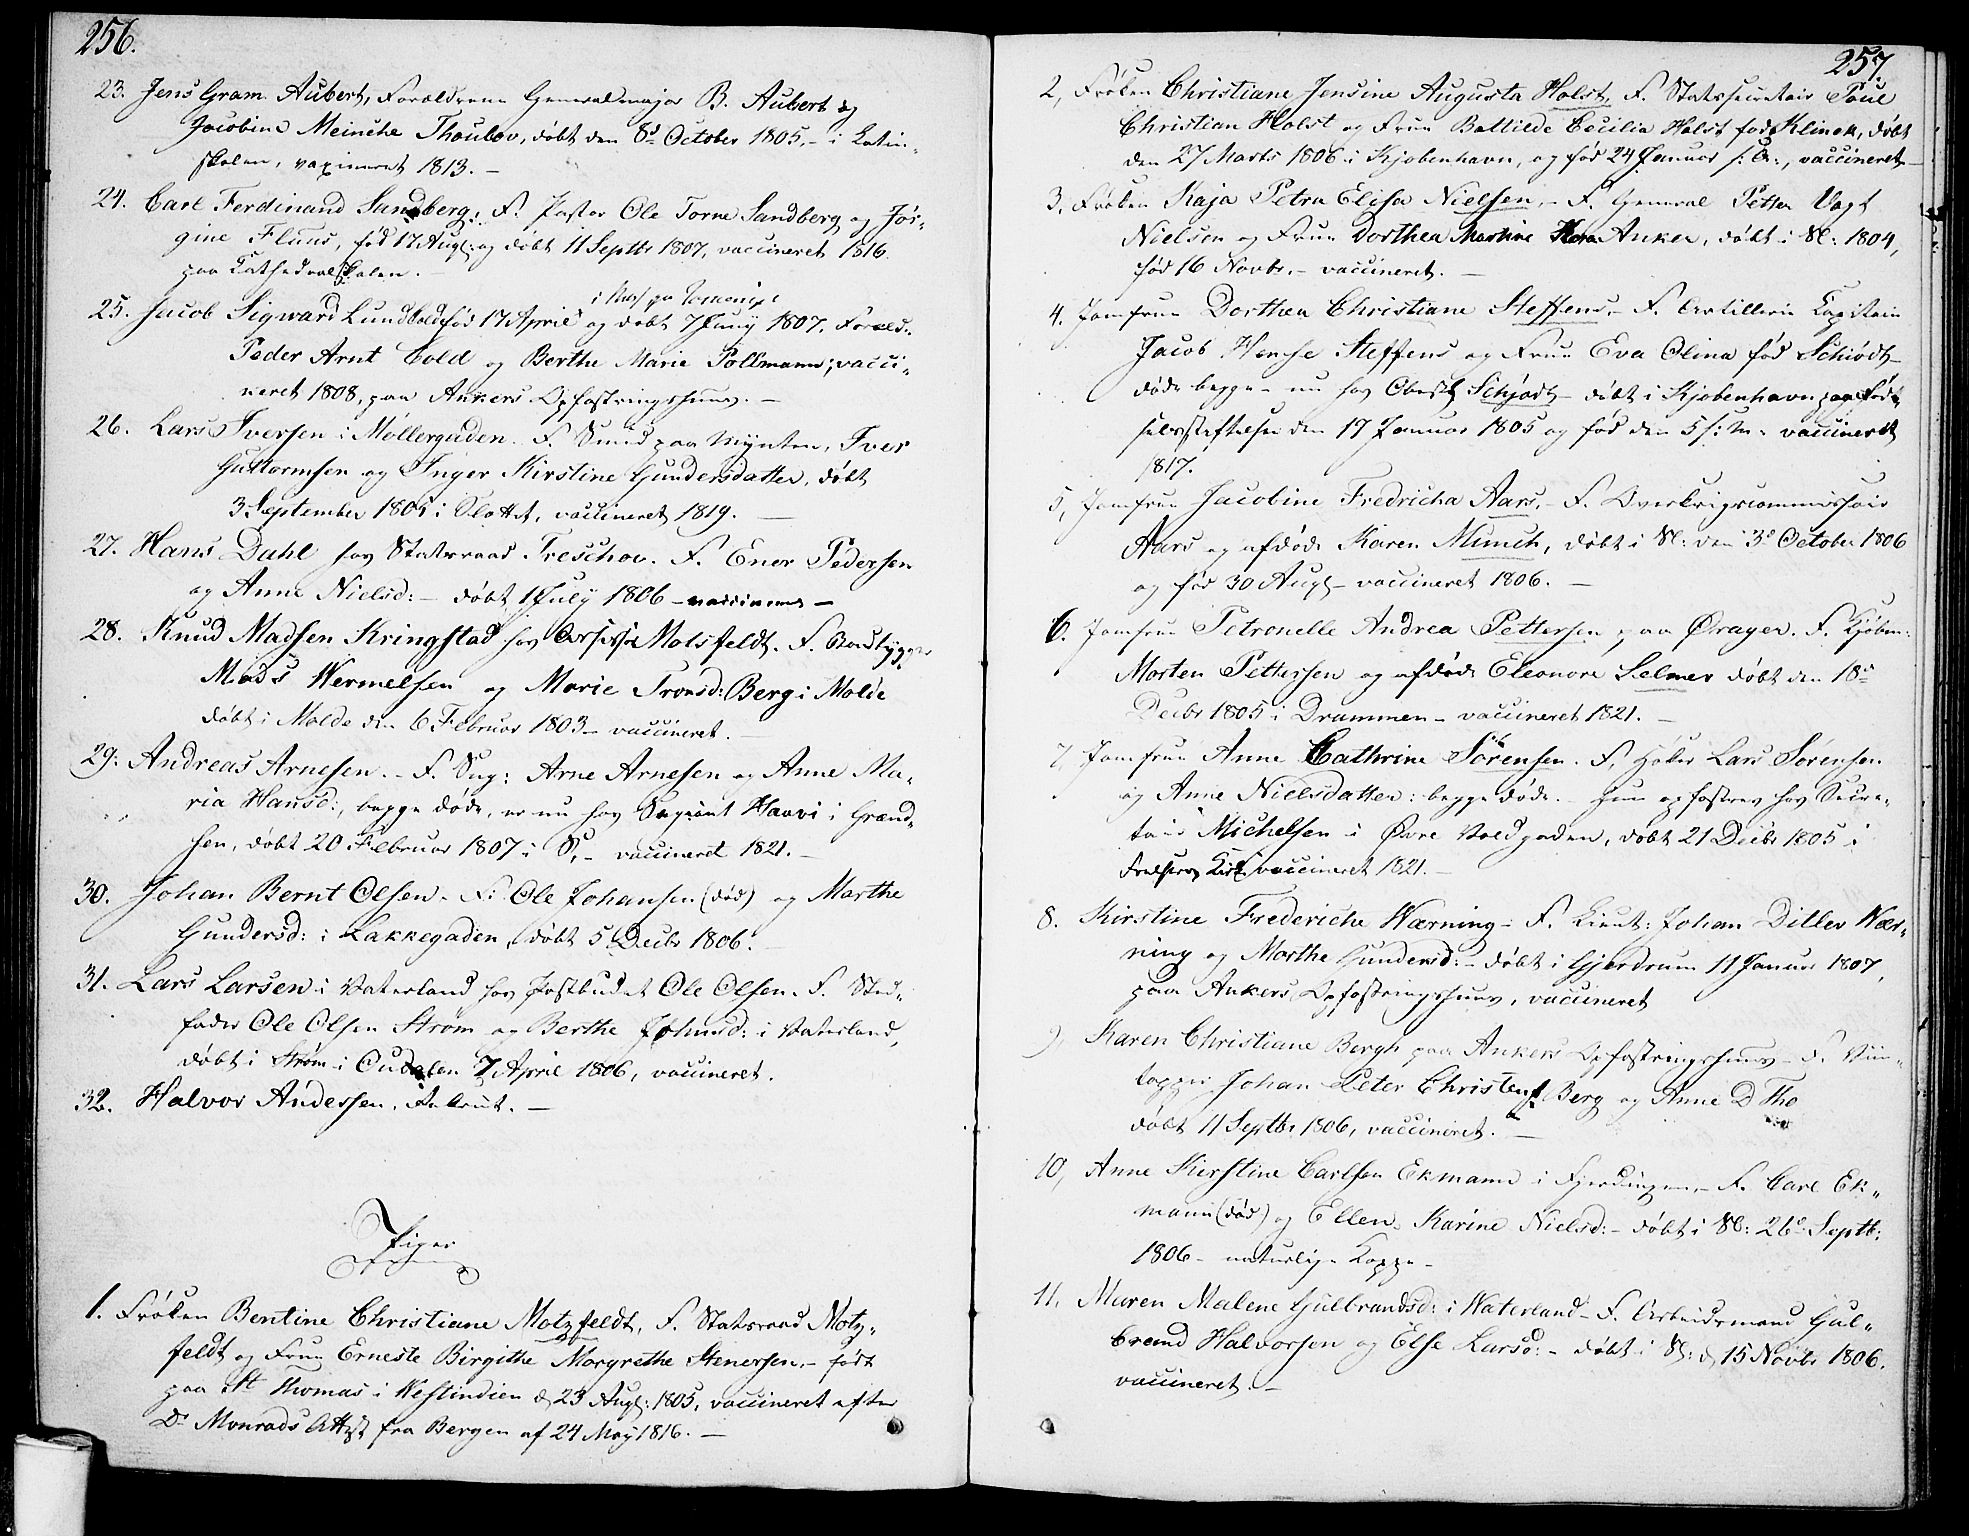 256.
23. Jens Gram Aubert, Forældrene Generalmajor B. Aubert og
Jacobine Meinche Thaulov, døbt den 8de October 1805, - i Latin-
skolen, vaxineret 1813. -
24. Carl Ferdinand Sandberg, F. Pastor Ole Torne Sandberg og Jør-
gine Fluus, fød 17 Augt: og døbt 11 Septbr 1807, vaccineret 1816
paa Cathedralskolen. -
25. Jacob Sigward Lund Cold fød 17 April og døbt 7 Juny 1807. Foræld.
Peder Arnt Cold og Berthe Marie Pollmann, vacci-
neret 1808, paa Ankers Opfostringshuus. -
26. Lars Iversen i Møllergaden. F. Smed paa Mynten, Iver
Guttormsen og Inger Kirstine Gundersdatter, døbt
3 September 1805 i Slottet, vaccineret 1819. -
27. Hans Dahl hos Statsraad Treschov. F. Ener Pedersen
og Anne Nielsd: - døbt 1 July 1806 - vaccineret -
28. Knud Madsen Kringstad hos Motsfeldt. F. Baadbygger
Mads Wermelsen og Marie Tronsd: Berg i Molde
døbt i Molde den 6 Februar 1803 - vaccineret. -
29. Andreas Arnesen. - F. Arne Arnesen og Anne Ma-
ria Hansd:, begge døde, er nu hos Sergeant Haavi i Grænd-
sen, døbt 20 Februar 1807 i S, - vaccineret 1821. -
30. Johan Bernt Olsen - F: Ole Johansen (død) og Marthe
Gundersd: i Lakkegaden, døbt 5 Decbr 1806. -
31. Lars Larsen i Vaterland hos Postbudet Ole Olsen. F. Sted-
fader Ole Olsen Strøm og Berthe Johansd: i Vaterland,
døbt i Strøm i Oudalen 7 April 1806, vaccineret.
32. Halvor Andersen, Rekrut. -
Piger
1. Frøken Bentine Christiane Motzfeldt, F. Statsraad Motz-
feldt og Frue Erneste Birgithe Margrethe Stenersen, - født
paa St Thomas i Westindien d 23 Augt: 1805, vaccineret efter
Dr Monrads Attest fra Bergen af 24 May 1816. -
257
2, Frøken Christiane Jensine Augusta Holst, F. Statssecretair Poul
Christian Holst og Frue Battilde Cecilia Holst fød Klinck, døbt
den 27 Marts 1806 i Kjøbenhavn, og fød 24 Januar s: A:, vaccineret -
3, Frøken Kaja Petra Elisa Nielsen, - F. General Petter Vogt
Nielsen og Frue Dorthea Martine Anker, døbt i Sl: 1804,
fød 16 Novbr, - vaccineret. -
4. Jomfrue Dorthea Christiane Steffens, - F. Artillerie Capitain
Jacob Steffens og Frue Eva Olina fød Schiødt -
døde begge - nu hos Oberst Schjødt - døbt i Kjøbenhavn paa Fød-
selsstiftelsen den 17 Januar 1805 og fød den 5 s: M. vaccineret
1817.
5, Jomfrue Jacobine Fredricha Aars, - F. Overkrigscommissair
Aars og afdøde Karen Munch, døbt i Sl: den 3de October 1806
og fød 30 Augt - vaccineret 1806. -
6. Jomfrue Petronelle Andrea Pettersen, paa Øvager. F. Kjøbm:
Morten Pettersen og afdøde Eleonore Selmer døbt den 18de
Decbr 1805 i Drammen - vaccineret 1821. -
7, Jomfrue Anne Cathrine Sørensen. F. Høker Lars Sørensen
og Anne Nielsdatter: begge døde. - Hun opfostres hos Secre-
tair Michelsen i Øvre Voldgaden, døbt 21 Decbr 1805 i
Frelsers Kirke vaccineret 1821. -
8. Kirstine Frederiche Wærning - F. Lieut: Johan Ditlev Wær-
ning og Marthe Gundersd: - døbt i Gjerdrum 11 Januar 1807,
paa Ankers Opfostringshuus, vaccineret
9) Karen Christiane Bergh paa Ankers Opfostringshuus - F. Viin-
tapper Johan Peter Christens. Berg og Anne D Tho
døbt 11 Septbr 1806, vaccineret. -
10, Anne Kirstine Carlsen Ekmann i Fjerdingen, - F. Carl Ek-
mann (død) og Ellen Karine Nielsd: - døbt i Sl: 26de Septb:
1806 - naturlige Kopper -
11. Maren Malene Gulbrandsd: i Waterland - F. Arbeidsmand Gul-
brand Halvorsen og Else Larsd: - døbt i Sl: d 15 Novbr 1806.
vaccineret. -